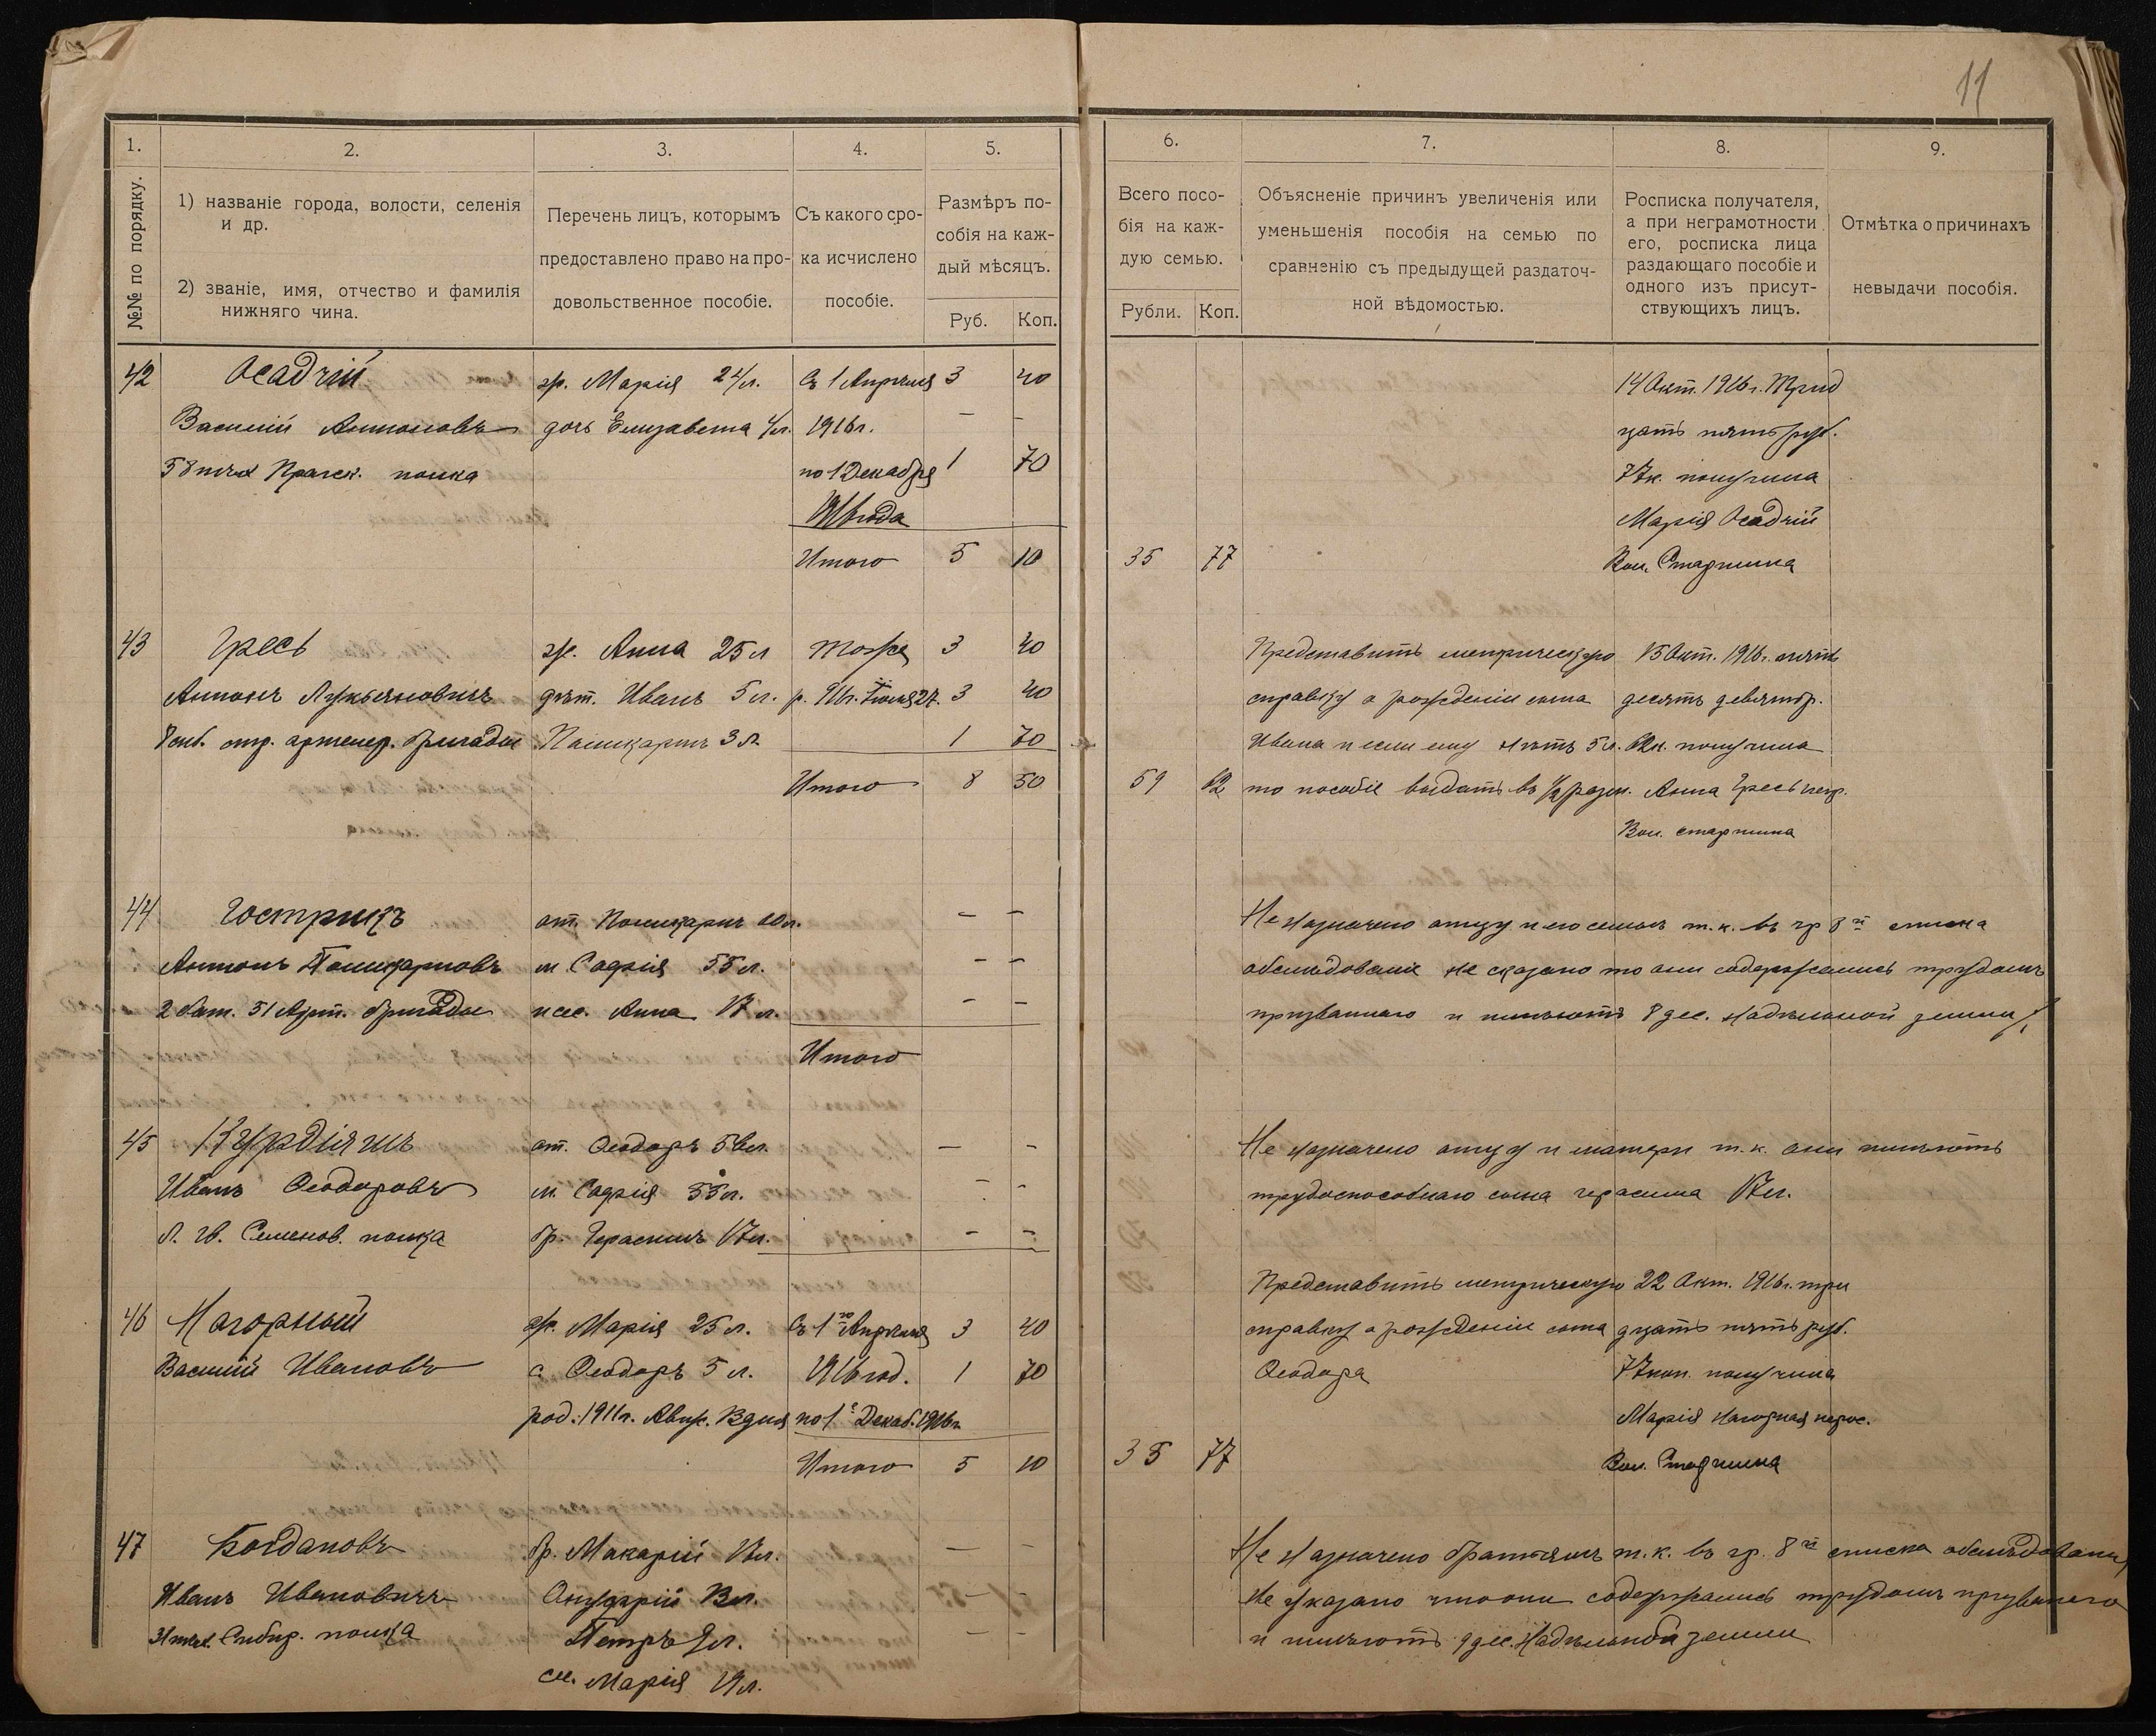 11
1.
2.
3.
4.
5.
6.
7.
8.
9.
№№ по порядку.
1) названіе города, волости, селенія
и др.
2) званіе, имя, отчество и фамилія
нижняго чина.
Перечень лицъ, которымъ
предоставлено право на про-
довольственное пособіе.
Съ какого сро-
ка исчислено
пособіе.
Размѣръ по-
собія на каж-
дый мѣсяцъ.
Руб. Коп.
Всего посо-
бія на каж-
дую семью.
Рубли. Коп.
Объясненіе причинъ увеличенія или
уменьшенія пособія на семью по
сравненію съ предыдущей раздаточ-
ной вѣдомостью.
Росписка получателя,
а при неграмотности
его, росписка лица
раздающаго пособіе и
одного изъ присут-
ствующихъ лицъ.
Отмѣтка о причинахъ
невыдачи пособія.
42 Осадчій ж. Марія 24 л. Съ 1 Апрѣля 3 40 14 Окт. 1916 г. Трид
Василій Антоновъ дочь Елизавета 4 л. 1916 г. — — цать пять руб.
58 пѣх Пражск. полка по 1 Декабря 1 70 77 к. получила
1916 года Марія Осадчій
Итого 5 10 35 77 Вол. Старшина
43 Гресь ж. Анна 25 л тоже 3 40 Представить метрическую 15 Окт. 1916 г. пять
Антонъ Лукьяновичъ дѣт. Иванъ 5 л. р. 911 г. Іюня 27. 3 40 справку о рожденіи сына десять девять р.
8 сиб. стр. артилер. бригады Поликарпъ 3 л. 1 70 Ивана и если ему нѣтъ 5 л. 62 к. получила
Итого 8 50 59 62 то пособіе выдать въ 1/2 разм. Анна Гресь негр.
Вол. старшина
44 Гострикъ от. Поликарпъ 60 л. — — Не назначено отцу и его семьѣ т. к. въ гр 8й списка
Антонъ Поликарповъ м. Софія 55 л. — — обслѣдованія не сказано то они содержались трудомъ
2 бат. 51 Арт. бригады и сес. Анна 17 л. — — призваннаго и имѣютъ 8 дес. надѣльной земли
Итого
45 Курдіяшъ от. Ѳеодоръ 56 л. — — Не назначено отцу и матери т. к. они имѣютъ
Иванъ Ѳеодоровъ м. Софія 55 л. — — трудоспособнаго сына Герасима 17 л.
Л. гв. Семенов. полка бр. Герасимъ 17 л. — —
Представить метрическую 22 Окт. 1916 г. три
46 Нагорный ж. Марія 25 л. Съ 1го Апрѣля 3 40 справку о рожденіи сына дцать пять руб.
Василій Ивановъ с. Ѳеодоръ 5 л. 1916 год. 1 70 Ѳеодора 77 коп. получила
род. 1911 г. Авг. 8 дня по 1е Декаб. 1916 г. Марія Нагорная негр.
Итого 5 10 35 77 Вол. Старшина
47 Богдановъ бр. Макарій 16 л. — — Не назначено братьямъ т. к. въ гр. 8й списка обслѣдованія
Иванъ Ивановичъ Онуфрій 13 л. — — не указано что они содержались трудомъ призванаго
Сибир. полка Петръ 9 л. — — и имѣютъ 9 дес. надѣльной земли
се. Марія 19 л.